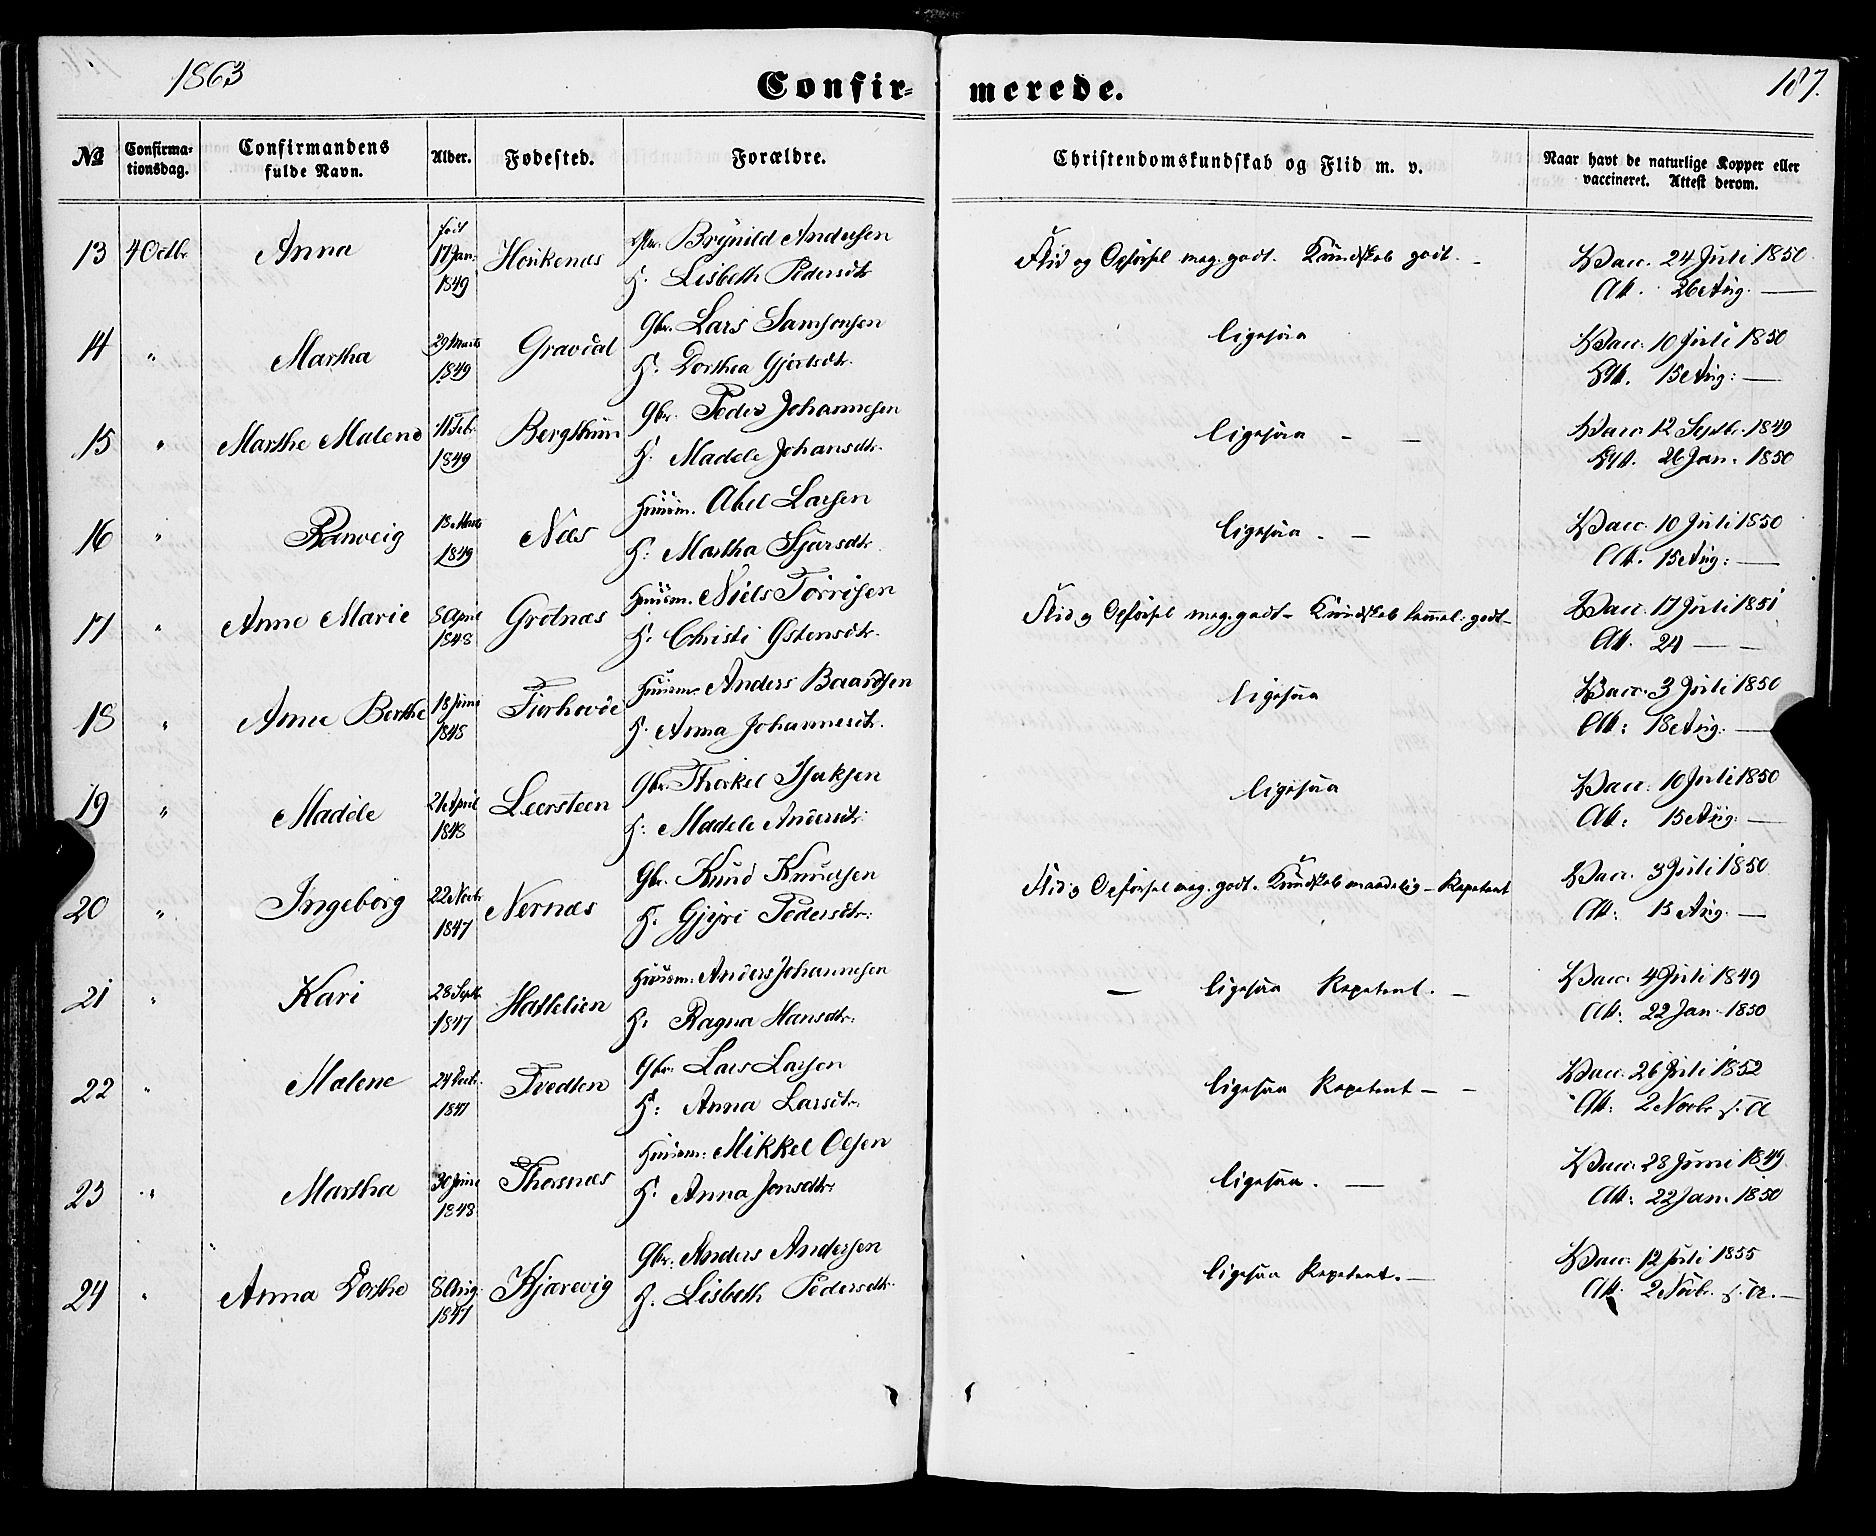 1863
Confir- merede.
187.
No
Confirma-
tionsdag.
Confirmandens
fulde Navn.
Alder.
Fødested.
Forældre.
Christendomskundskab og Flid m. v.
Naar havt de naturlige Kopper eller
vaccineret. Attest derom.
13 4 Octbr Anna født 17 Jan: 1849 Brynild Andersen
F. Lisbeth Pedersdtr
Flid og Opførsel meg. godt. Kundskab godt. –
Vacc. 24 Juli 1850
Att. 26 Aug. —
14 " Martha 29 Marts 1849 Gravdal Gbr. Lars Samsonsen
H. Dorthea Gjertsdtr.
ligesaa
Vacc. 10 Juli 1850
Att. 15 Aug: —
15 " Marthe Malene 11 Febr. 1849 Bergsthun Gbr. Peder Johannesen
H. Madele Johansdtr.
ligesaa – –
Vacc. 12 Septbr. 1849
Att. 26 Jan. 1850
16 " Ranveig 13 Marts 1849 Næs Huusm. Abel Larsen
H: Martha Sjursdtr.
ligesaa. –
Vacc. 10 Juli 1850
Att. 15 Aug: —
17 " Anne Marie 8 April 1848 Grotnæs Huusm. Niels Torrisen
H. Christi Østensdtr.
Flid og Opførsel meg. godt – Kundskab temmel. godt –
Vacc. 17 Juli 1851
Att. 24 — —
18 " Anne Berthe 18 Juni 1848 Huusm. Anders Baardsen
H. Anna Johannesdtr.
ligesaa
Vacc. 3 Juli 1850
Att: 18 Aug. —
19 " Madele 21 April 1848 Leersteen Gbr. Thorkel
H: Madele Andersdtr.
ligesaa
Vacc. 10 Juli 1850
Att: 15 Aug. —
20 " Ingeborg 22 Novbr 1847 Nernæs Gbr. Knud Knudsen
H. Gjyri Pedersdtr:
Flid og Opførsel meg. godt. Kundskab maadelig – Repetent
Vacc. 3 Juli 1850
Att: 15 Aug. —
21 " Kari 28 Septbr 1847 Hattelien Huusm. Anders Johannesen
H: Ragna Hansdtr:
— ligesaa Repetent. –
Vacc. 4 Juli 1849
Att: 22 Jan. 1850
22 " Malene 1847 Tvedten Gbr: Lars Larsen
H: Anna Larsdtr.
ligesaa Repetent – –
Vacc. 26 Juli 1852
Att: 2 Novbr s. A
23 " Martha 30 Juni 1848 Thorsnæs Huusm: Mikkel Olsen
H: Anna Jonsdtr:
ligesaa. —
Vacc. 28 Juni 1849
Att: 22 Jan. 1850
24 " Anna Dorthe 8 Aug. 1847 Kjærevig Gbr. Anders Andersen
H. Lisbeth Pedersdtr.
ligesaa Repetent. –
Vacc. 12 Juli 1855
Att. 2 Novbr. s. A. –